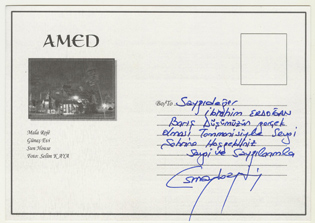 AMED
Malâ Rojê
Güneş Evi
Sun House
Foto: Selim KAYA
Boy/To: Saygıdeğer
İbrahim ERDOĞAN
Barış Düşümüzün gerçek
olması Temennisiyle Sevgi
Şehrine Hoşgeldiniz
Sevgi ve Saygılarımla